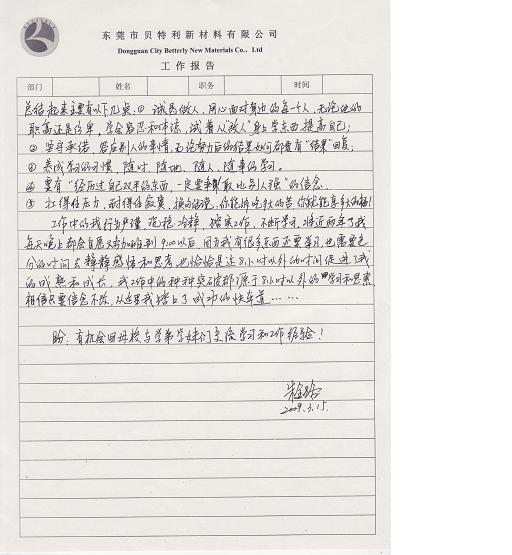 东莞市贝特利新材料有限公司
Dongguan City Betterly New Materials Co., Ltd
工作报告
部门 姓名 职务 时间
总结起来主要有以下几点：① 诚恳做人，用心面对身边的每一个人，无论他的
职高还是位卑，学会宽容和体谅，试着从“敌人”身上学东西提高自己；
② 坚守承诺，答应别人的事情，无论努力后的结果如何都要有“结果”回复；
③ 养成学习的习惯，随时、随地、随人、随事的学习。
④ 要有“经历过自己双手的东西，一定要争取比别人强”的信念。
⑤ 扛得住压力，耐得住寂寞，换句话说，你能够吃多大的苦，你就能享多大的福！
工作中的我行为严谨、沉稳、冷静、踏实工作，不断学习，将近两年了我
每天晚上都会自愿又努力的到9:00以后，因为我有很多东西还要学习，也需要充
分的时间去静静感悟和思考，也恰恰是这8小时以外的时间促进了我
的成熟和成长，我工作中的种种突破都源于8小时以外的学习和思索
相信只要信念不改，从这里我踏上了成功的快车道……
盼：有机会回母校与学弟学妹们交流学习和工作经验！
2009.3.15